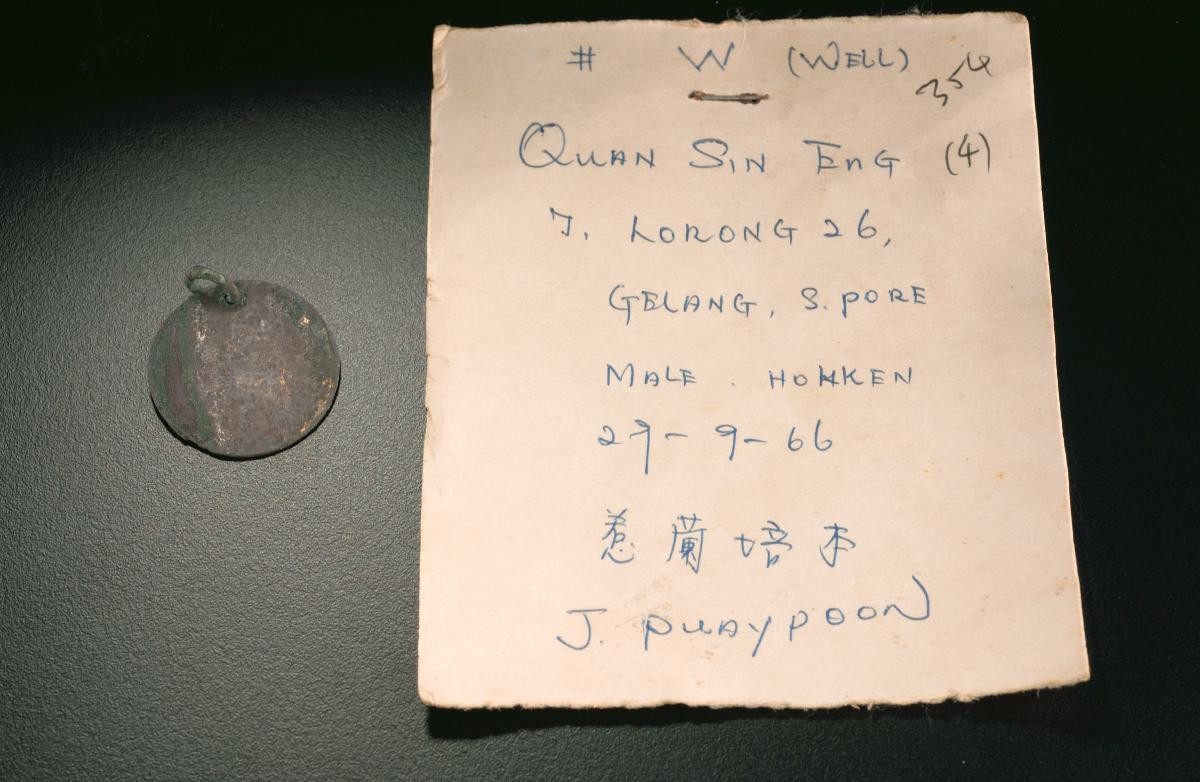 # W (WELL) 354
QUAN SIN ENG (4)
7. LORONG 26,
GELANG, S.PORE
MALE. HOKKEN
29-9-66
惹蘭培本
J. PUAY POON